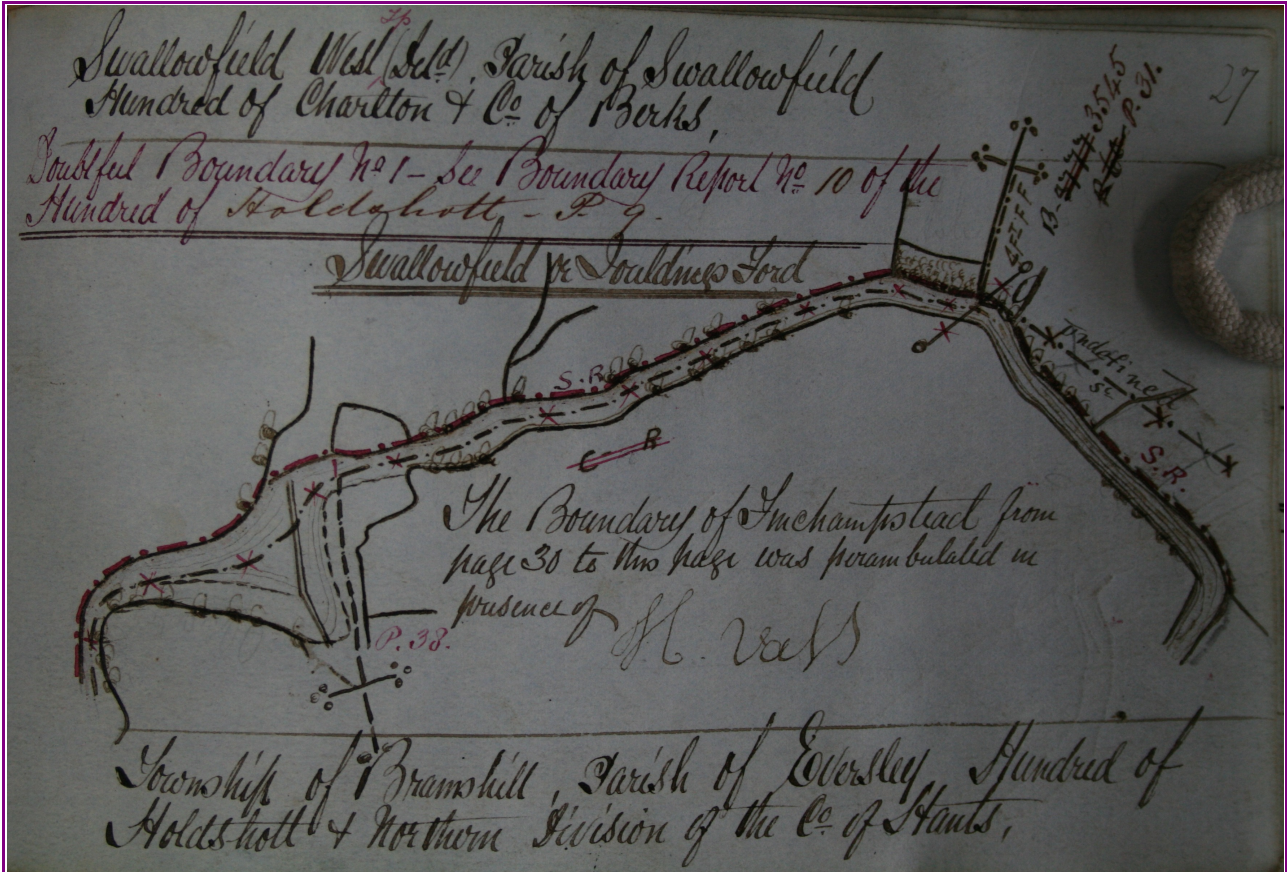 Tp
Swallowfield West (Detd). Parish of Swallowfield
Hundred of Charlton & Co of Berks,
27
B-3777 3545
P. 31.
Doubtful Boundary No 1 - See Boundary Report No 10 of the
Hundred of Holdshott - P. 9.
Swallowfield or Douldings Ford
4 Ft F F
Undefined
S.R
S.R.
C R
The Boundary of Finchampstead from
page 30 to this page was perambulated in
presence of
H.
P. 38.
Township of Bramshill, Parish of Eversley, Hundred of
Holdshott & Northern Division of the Co of Hants.